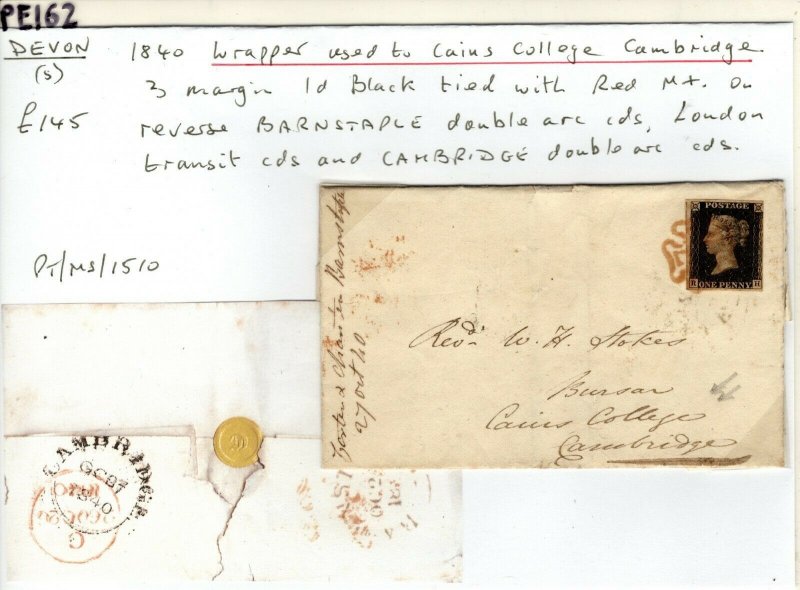 PE162
DEVON
(s)
£145
1840 Wrapper used to Caius College Cambridge
3 margin 1d Black tied with Red MX. On
reverse BARNSTAPLE double arc cds, London
transit cds and CAMBRIDGE double arc cds.
PT/MS/1510
POSTAGE
ONE PENNY
Barnstaple
27 Oct 40
Revd. W. H. Stokes
Bursar
Caius College
Cambridge
CAMBRIDGE
1840